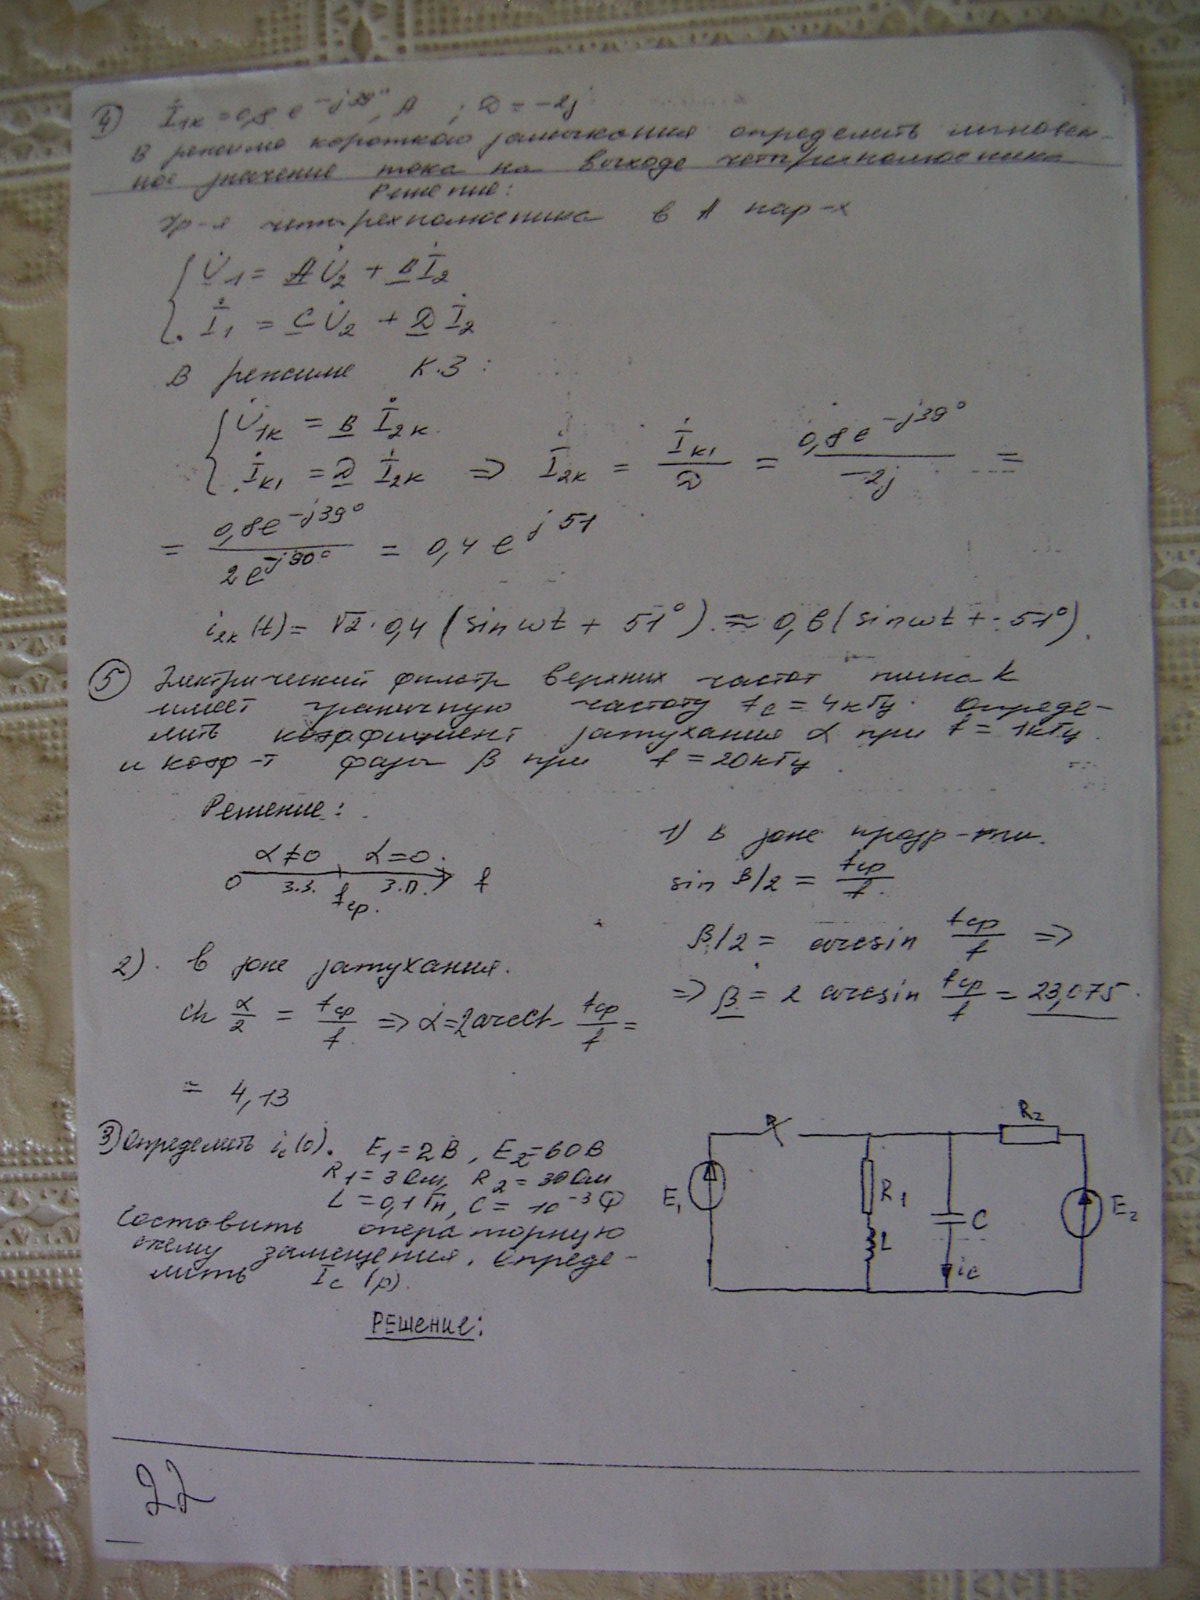 4) İ1к = 0,8 e^-j39°, А ; D = -2j
В режиме короткого замыкания определить мгновен-
ное значение тока на выходе четырехполюсника
Решение:
Ур-я четырехполюсника в А пар-х
U̇1 = A U̇2 + B İ2
İ1 = C U̇2 + D İ2
В режиме К.З :
U̇1к = B İ2к
İк1 = D İ2к => İ2к = İк1 / D = 0,8e^-j39° / -2j =
= 0,8e^-j39° / 2e^-j90° = 0,4 e^j51
i2к(t) = √2 · 0,4 (sin ωt + 51°) ≈ 0,6 (sin ωt + 51°).
5) Электрический фильтр верхних частот типа k
имеет граничную частоту fc = 4кГц. Опреде-
лить коэффициент затухания α при f = 1кГц
и коэф-т фазы β при f = 20кГц.
Решение:
α≠0 α=0
0 З.З. fср. З.П. f
1) в зоне прозр-сти.
sin β/2 = fср / f
β/2 = arcsin fср / f =>
=> β = 2 arcsin fср / f = 23,075.
2). в зоне затухания.
ch α/2 = fср / f => α = 2 arcch fср / f =
= 4,13
3) Определить ic(0). E1 = 2В, E2 = 60В
R1 = 3 Ом, R2 = 30 Ом
L = 0,1 Гн, C = 10^-3 Ф
Составить операторную
схему замещения. Опреде-
лить Ic (p).
R2
E1
R1
L
C
ic
E2
РЕШЕНИЕ:
22